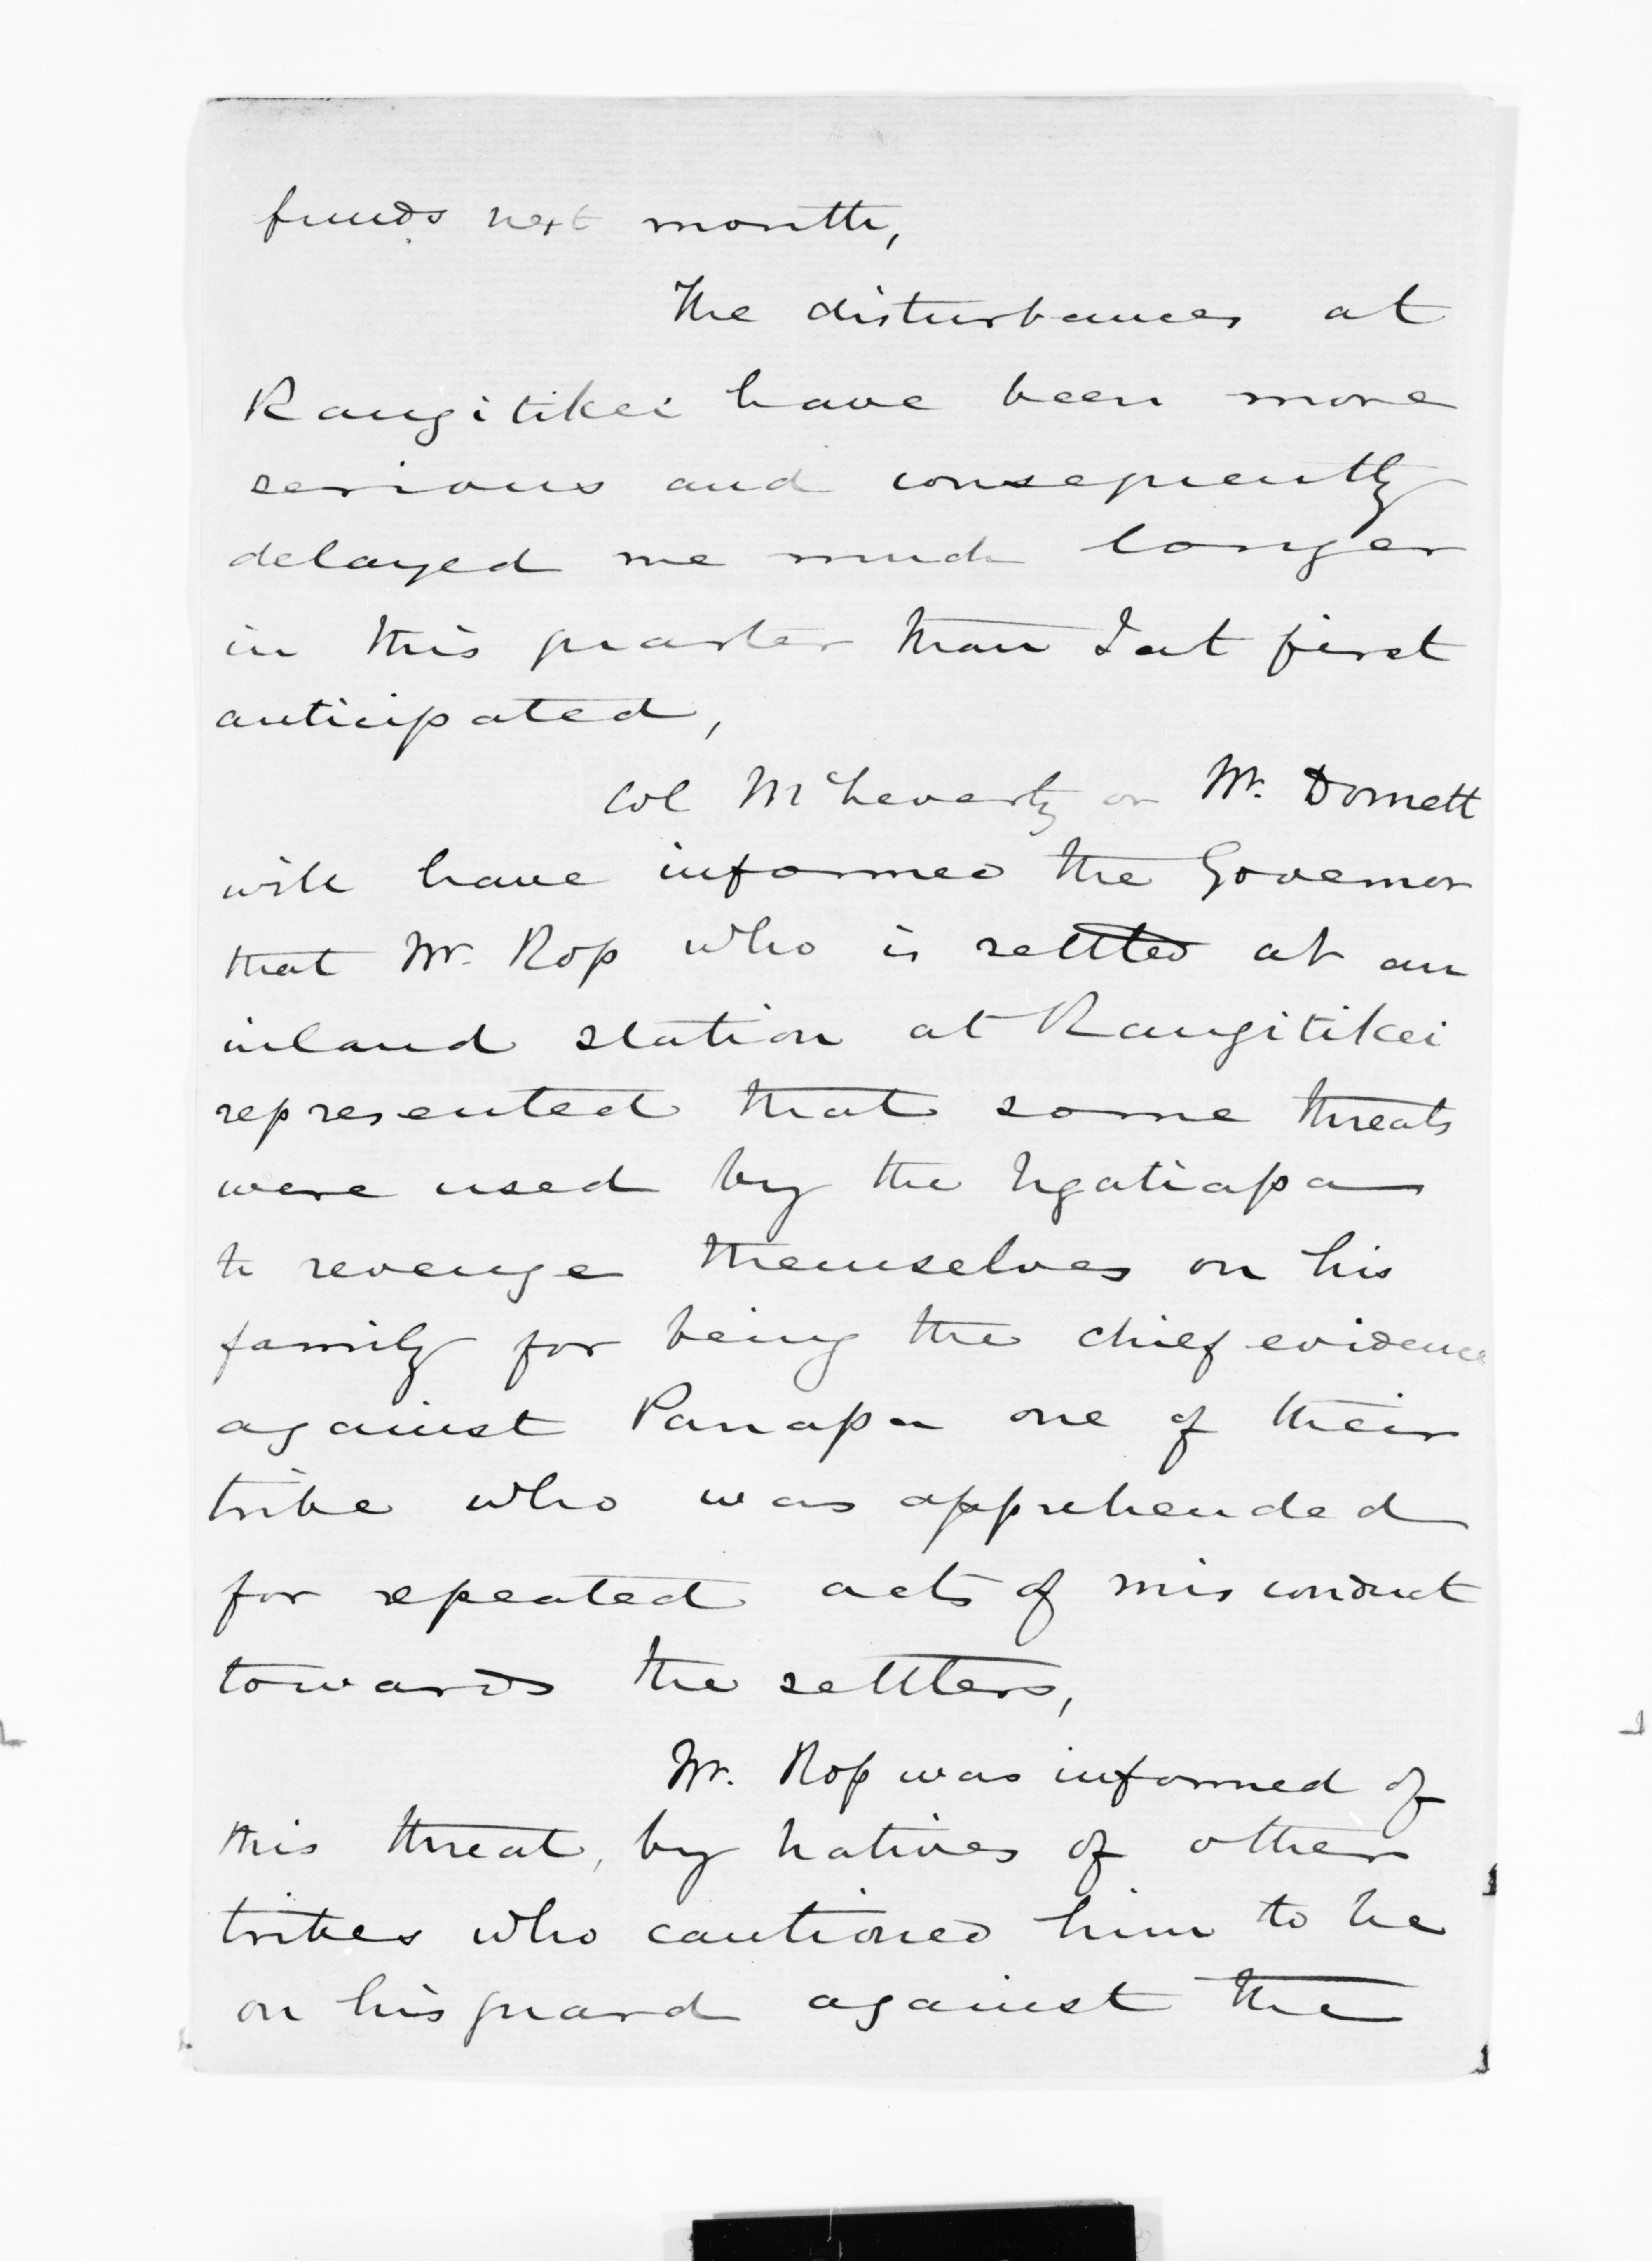 funds next month,
The disturbances at
Rangitikei have been more
serious and consequently
delayed me much longer
in this quarter than I at first
anticipated,
Col McCleverty or Mr. Domett
will have informed the Governor
that Mr. Ross who is settled at an
inland station at Rangitikei
represented that some threats
were used by the Ngatiapa
to revenge themselves on his
family for being the chief evidence
against Panapa one of their
tribe who was apprehended
for repeated acts of misconduct
towards the settlers,
Mr. Ross was informed of
this threat, by Natives of other
tribes who cautioned him to be
on his guard against the